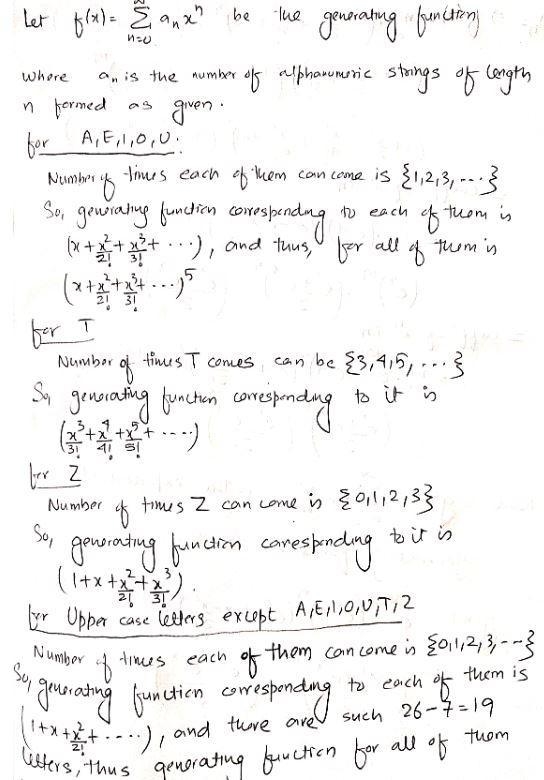 Let f(x) = ∞ Σ n=0 aₙxⁿ be the generating function
where aₙ is the number of alphanumeric strings of length
n formed as given.
for A, E, I, O, U.
Number of times each of them can come is {1,2,3,----}
So, generating function corresponding to each of them is
(x + x²/2! + x³/3! + ···), and thus, for all of them is
(x + x²/2! + x³/3! + ···)⁵
for T
Number of times T comes can be {3,4,5, ...}
So, generating function corresponding to it is
(x³/3! + x⁴/4! + x⁵/5! + ----)
for Z
Number of times Z can come is {0,1,2,3}
So, generating function corresponding to it is
(1 + x + x²/2! + x³/3!).
for Upper case letters except A,E,I,O,U,T,Z
Number of times each of them can come is {0,1,2,3,--}
So, generating function corresponding to each of them is
(1 + x + x²/2! + ····), and there are such 26-7=19
letters, thus generating function for all of them